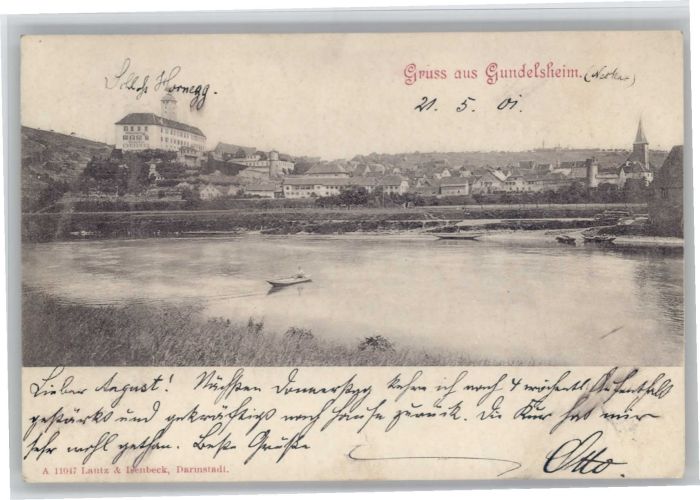 Schloß Hornegg.
Gruss aus Gundelsheim. (Neckar)
21. 5. 01.
Lieber August! Nächsten Donnerstag kehre ich nach 4 wöchentl. Aufenthalt
gestärkt und gekräftigt nach Hause zurück. Die Kur hat mir
sehr wohl gethan. Beste Grüße
Otto.
A 11047 Lautz & Isenbeck, Darmstadt.